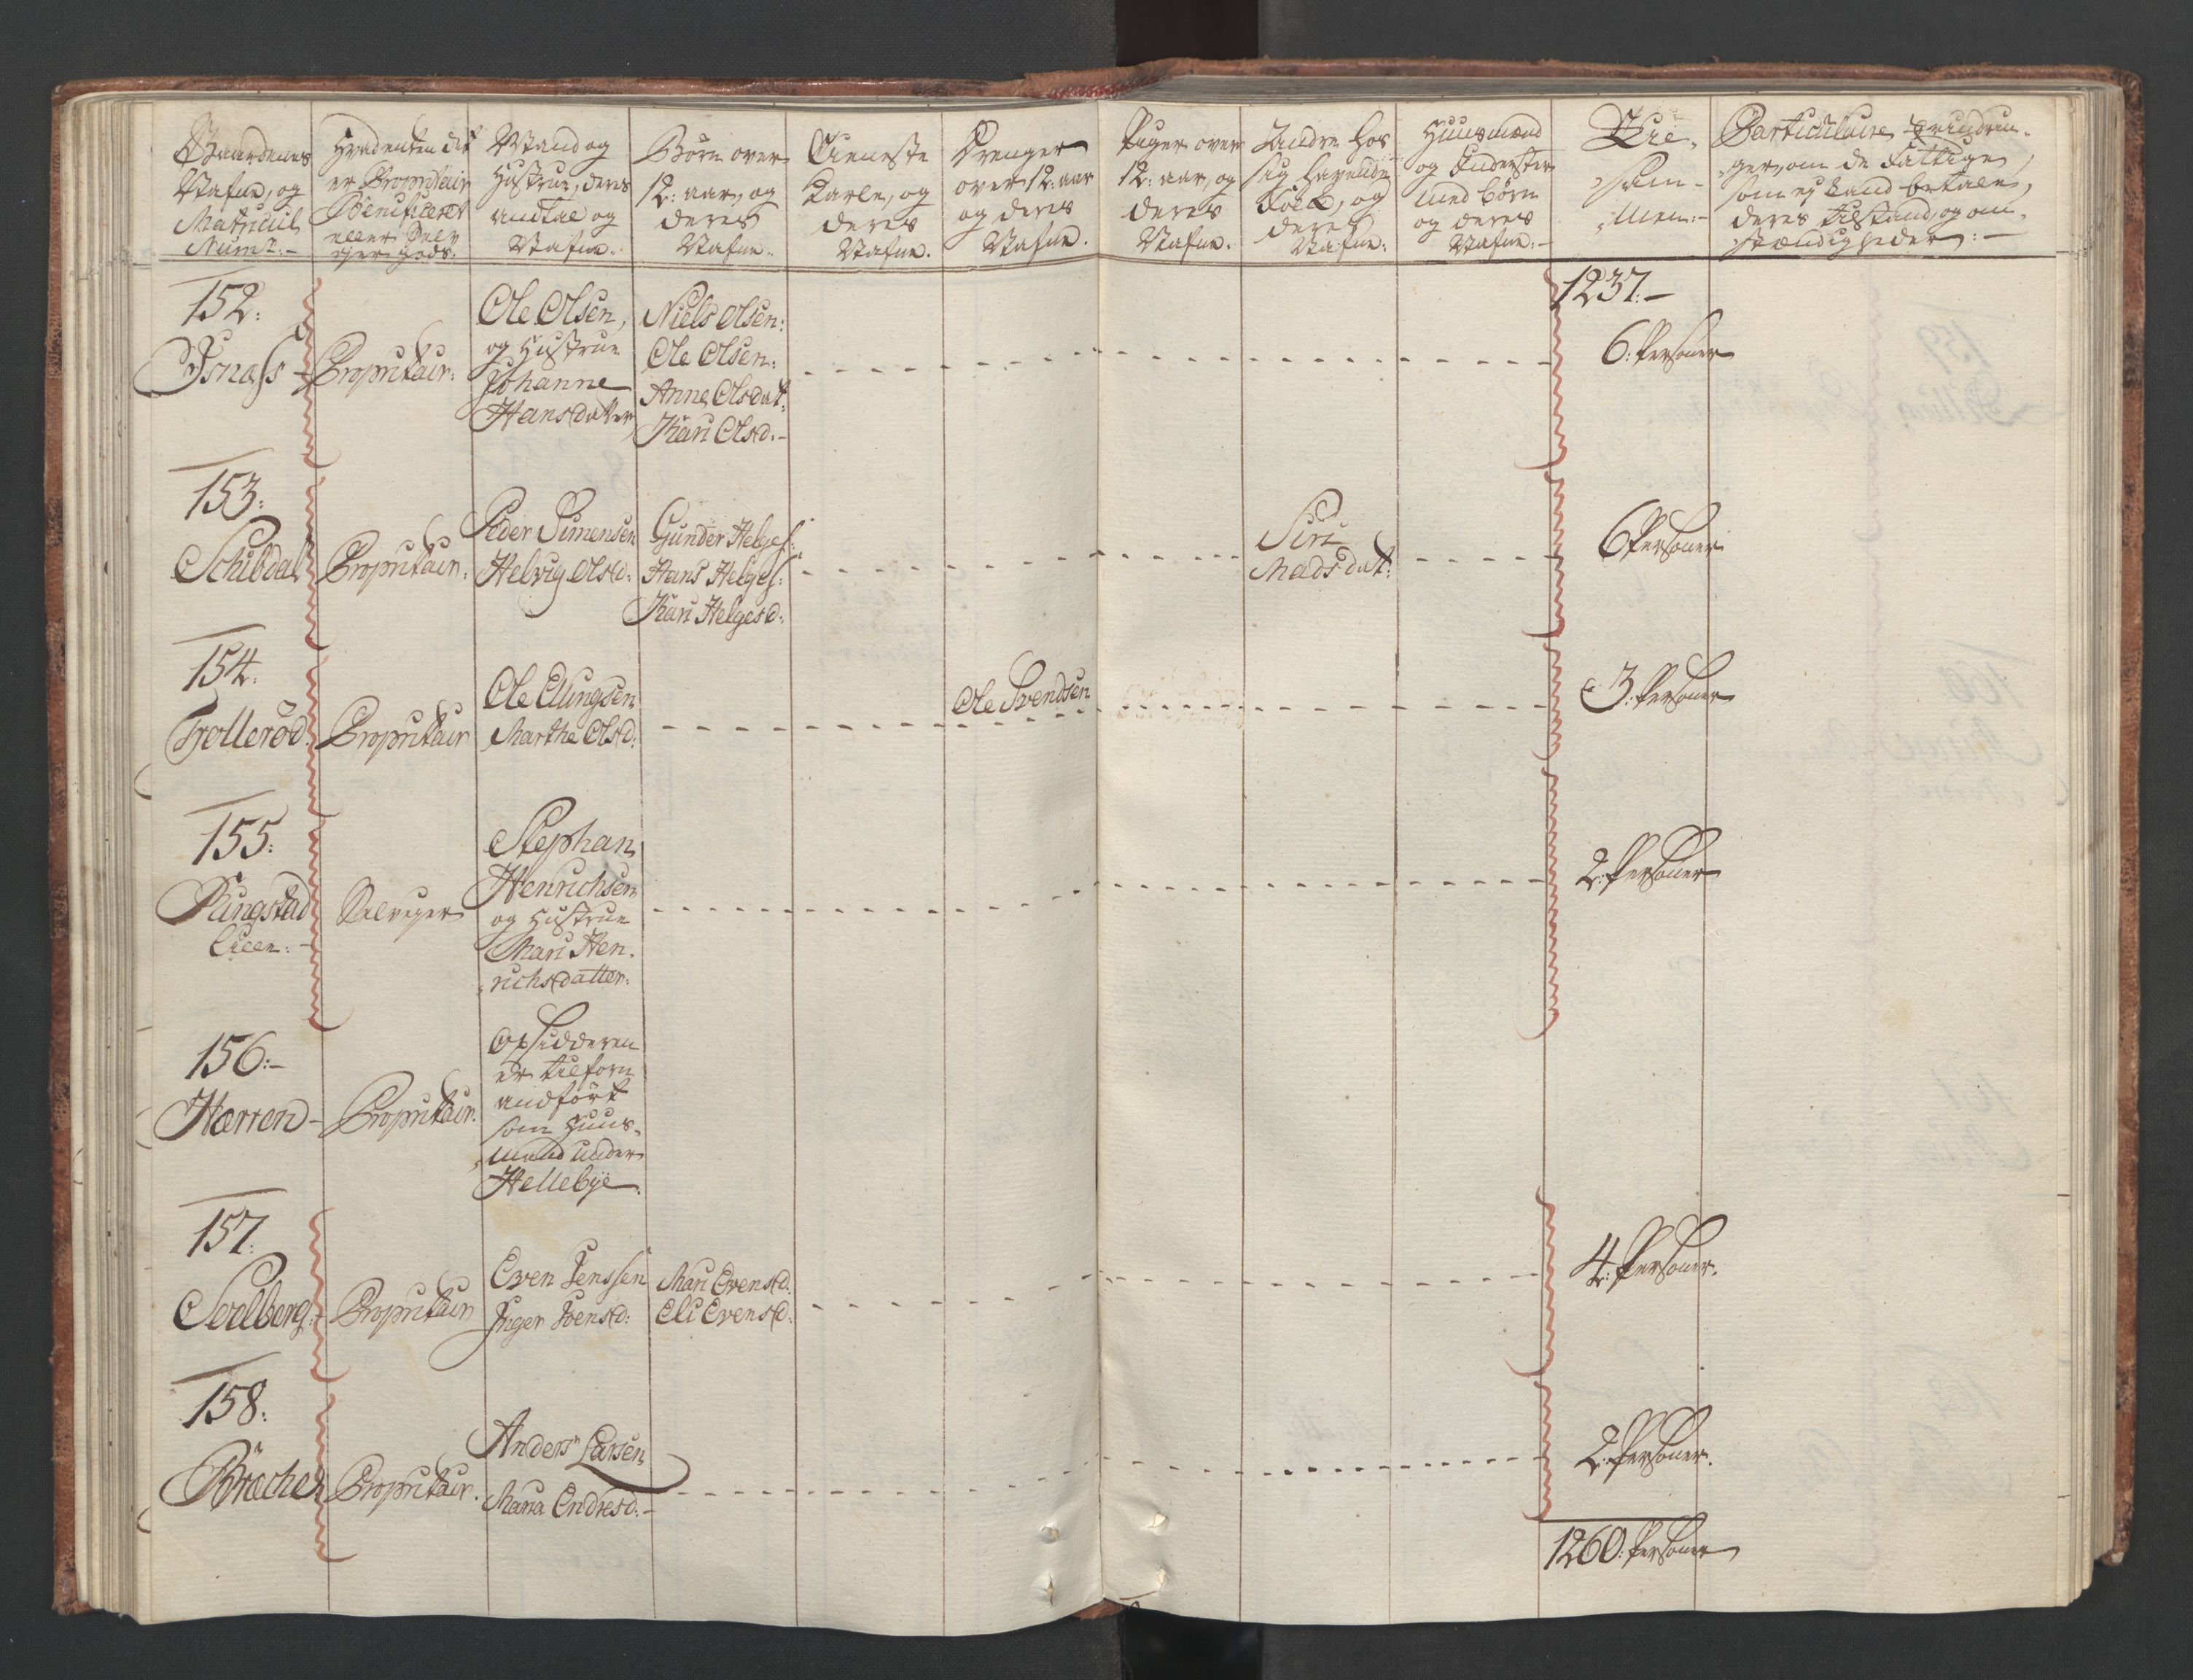 Gaardenes
Nafne, og
Matricul
Numr:-
Hvadenten det
er Proprietair
Beneficeret
eller Selv
ejer Gods.
Mand og
Hustrue, deres
andtal og
Nafne.
Børn over
12: aar, og
deres
Nafne.
Tieneste
Karle, og
deres
Nafne.
Drenger
over 12: aar
og deres
Nafne.
Piger over
12: aar, og
deres
Nafne.
Andre hos
sig havende
Folk, og
deres
Nafne:
Huusmænd
og Inderster
med børn
og deres
Nafne:-
Til-
sam-
men:-
Particulaire Erindrin-
ger, om de Fattige,
som ej kand betale,
deres tilstand, og om-
stændigheder:-
1237:-
152:
Proprietair:
Ole Olsen,
og Hustrue
Johanne
Hansdatter
Niels Olsen:
Ole Olsen:
Anne Olsdat:
Kari Olsd:-
6: Personer
153:
Schibdal
Proprietair:
Peder Simensen
Helvig Olsd:
Gunder Helges:
Hans Helges:
Kari Helgesd:
Siri
Madsdat:
6 Personer
154:
Trollerød
Proprietair
Ole Ellingsen
Marthe Olsd:
Ole Svendsen
3: Personer
155:
Ringstad
Lieen:-
Selveger
Stephan
Henrichsen
og Hustrue
Mari Hen-
richsdatter:
2: Personer
156:-
Hærren-
Proprietair:
Opsidderen
er tilforn
andført
som Huus-
mand under
Hellebye.
157:
Soelberg:
Proprietair
Even Jenssen
Inger Joensd:
Mari Evensd:
Eli Evensd:
4: Personer.
158:
Bræche
Proprietair:
Anders Larsen
Maria Endresd:-
2: Personer.
1260: Personer